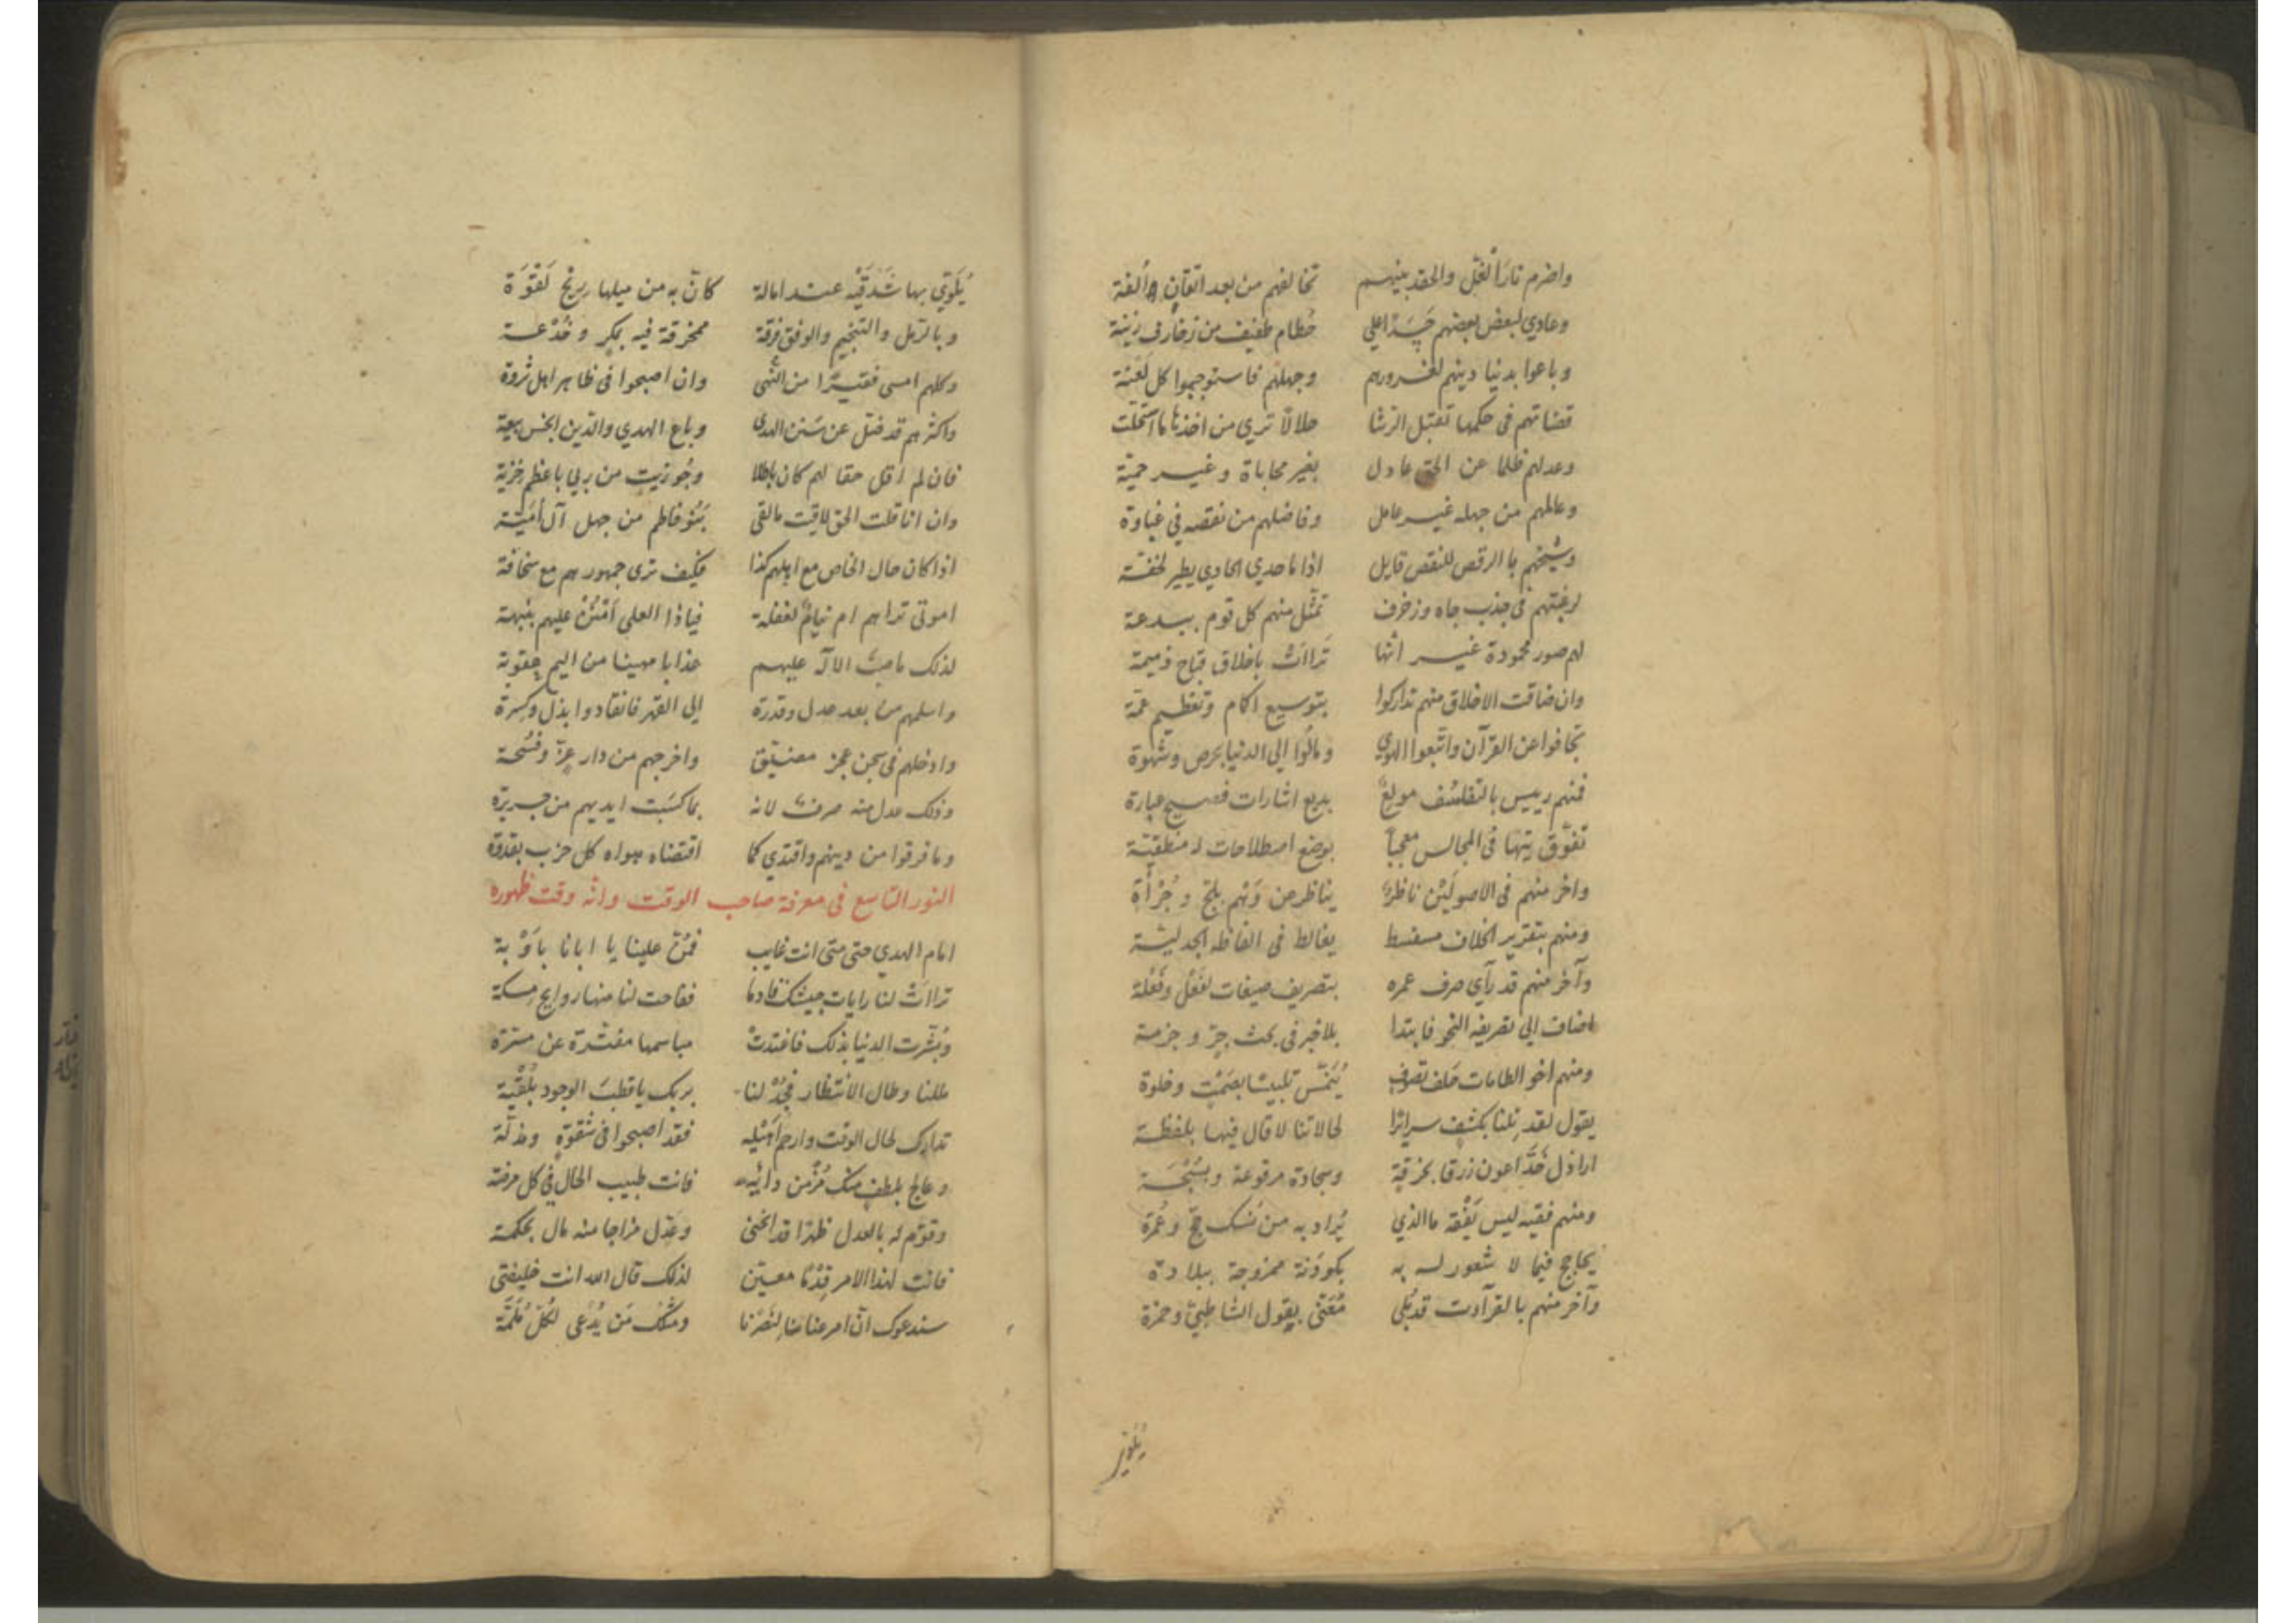 واضرم نار الغل والحقد بينهم تخالفهم من بعد اتفاق وألفة
وعادي لبعض بعضهم حسدا علي حطام طفيف من زخارف زينة
وباعوا بدنيا دينهم لغرورهم وجهلهم فاستوجبوا كل لعنة
قضاتهم في حكمها تقبل الرشا حلالا تري من اخذها ما استحلت
وعدلهم ظلما عن الحق عادل بغير محاباة وغير حمية
وعالمهم من جهله غير عامل وفاضلهم من نقصه في غباوة
وشيخهم بالرقص للنقص قايل اذا ما حدي الحادي يطير لخفة
لرغبتهم في جذب جاه وزخرف تمثل منهم كل قوم ببدعة
لهم صور محمودة غير انها تراات باخلاق قباح ذميمة
وان ضاقت الاخلاق منهم تداركوا بتوسيع اكام وتعظيم عمة
تجافوا عن القرآن واتبعوا الهوي ومالوا الي الدنيا بحرص وشهوة
فمنهم رييس بالتفلسف مولع بديع اشارات فصيح عبارة
تفوق بتها في المجالس معجبا بوضع اصطلاحات له منطقية
واخر منهم في الاصولين ناظر يناظر من وهم بلج وجرأة
ومنهم بتقرير الخلاف مسفسط يغالط في الفاظه الجدلية
وآخر منهم قد رآي صرف عمره بتصريف صيغات لفعل وفعلة
اضاف الي تصريفه النحو فابتدا بلا خبر في بحث جر وجزمة
ومنهم اخو الطامات حلف تصوف ينمس تلبيسا بصمت وخلوة
يقول لقد نلنا بكشف سرائرا لحالاتنا لا قال فيها بلفظة
اراذل خداعون زرقا بخرقة وسجادة مرقوعة وبسبحة
ومنهم فقيه ليس يفقه ما الذي يراد به من نسك حج وعمرة
يحاجج فيما لا شعور له به بكودنة ممزوجة ببلادة
وآخر منهم بالقرآءت قد بلي مغنى بقول الشاطبي وحمزة
يلوي
يلوي بها شدقيه عند امالة كان به من ميلها ريح لقوة
وبالرمل والتنجيم والوفق فرقة ممخرقة فيه بمكر وخدعة
وكلهم امسي فقيرا من النهي وان اصبحوا في ظاهر اهل ثروة
واكثرهم قد ضل عن سنن الهدي وباع الهدي والدين ابخس بيعة
فان لم اقل حقا لهم كان باطلا وجوزيت من ربي باعظم خزية
وان انا قلت الحق لاقيت ما لقي بنو فاطم من جهل آل أمية
اذا كان حال الخاص مع اهلهم كذا فكيف تري جمهورهم مع سخافة
اموتي تراهم ام نيام لغفلة فياذا العلي امنن عليهم بنبهة
لذلك ما صب الاله عليهم عذابا مهينا من اليم عقوبة
واسلمهم من بعد عدل وقدرة الي القهر فانقادوا بذل وكسرة
وادخلهم في سجن عجز مضيق واخرجهم من دار عزة وفسحة
وذلك عدل منه صرف لانه بما كسبت ايديهم من جريرة
وما فرقوا من دينهم واقتدي كما اقتضاه هواه كل حزب بقدوة
النور التاسع في معرفة صاحب الوقت وانه وقت ظهوره
امام الهدي حتي متي انت غايب فمن علينا يا ابانا باوبة
تراات لنا رايات جيشك قادما ففاحت لنا منها روايح مسكة
وبشرت الدنيا بذلك فاغتدت مباسمها مفترة عن مسرة
مللنا وطال الانتظار فجد لنا بربك يا قطب الوجود بلقية
تدارك لحال الوقت وارحم اهيله فقد اصبحوا في شقوة ومذلة
وعالج بلطف منك مزمن دائه فانت طبيب الحال في كل مرضة
وقوم له بالعدل ظهرا قد انحني وعدل مزاجا منه مال بحكمة
فانت لهذا الامر قدما معين لذلك قال الله انت خليفتي
سندعوك ان امر عنانا لنصرنا ومثلك من يدعي لكل ملمة